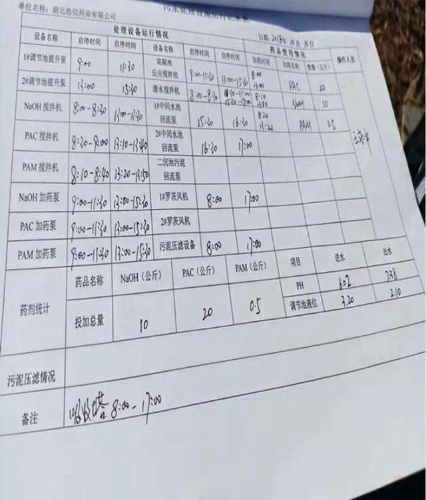 单位名称:湖北浩信药业有限公司
处理设备运行情况 药品使用情况
设备名称 启停时间 启停时间 设备名称 启停时间 启停时间 加药时间 加药名称 数量(公斤) 操作人员
1#调节池提升泵 9:00 11:30 混凝池反应搅拌机 9:00-11:30 13:00-15:30 8:00 PAC 20
2#调节池提升泵 13:00 15:30 潜水搅拌机 8:00-9:00 13:00 10
NaOH 搅拌机 8:00-8:30 13:00-13:30 1#中间水池回流泵 15:30 16:30 8:20 13:20 PAM 0.5
PAC 搅拌机 8:30-9:00 13:10-13:40 2#中间水池回流泵 16:30 17:00
PAM 搅拌机 8:10-8:40 13:20-13:50 二沉池污泥回流泵
NaOH 加药泵 9:00-11:30 13:00-15:30 1#罗茨风机 8:00 17:00
PAC 加药泵 9:00-11:30 13:00-15:30 2#罗茨风机
PAM 加药泵 9:00-11:30 13:00-15:30 污泥压滤设备 8:00 17:00
药剂统计 药品名称 NaOH(公斤) PAC(公斤) PAM(公斤) 项目 进水 出水
投加总量 10 20 0.5 PH 6.02
调节池液位 3.20 2.10
污泥压滤情况
备注 吸收塔 8:00-17:00